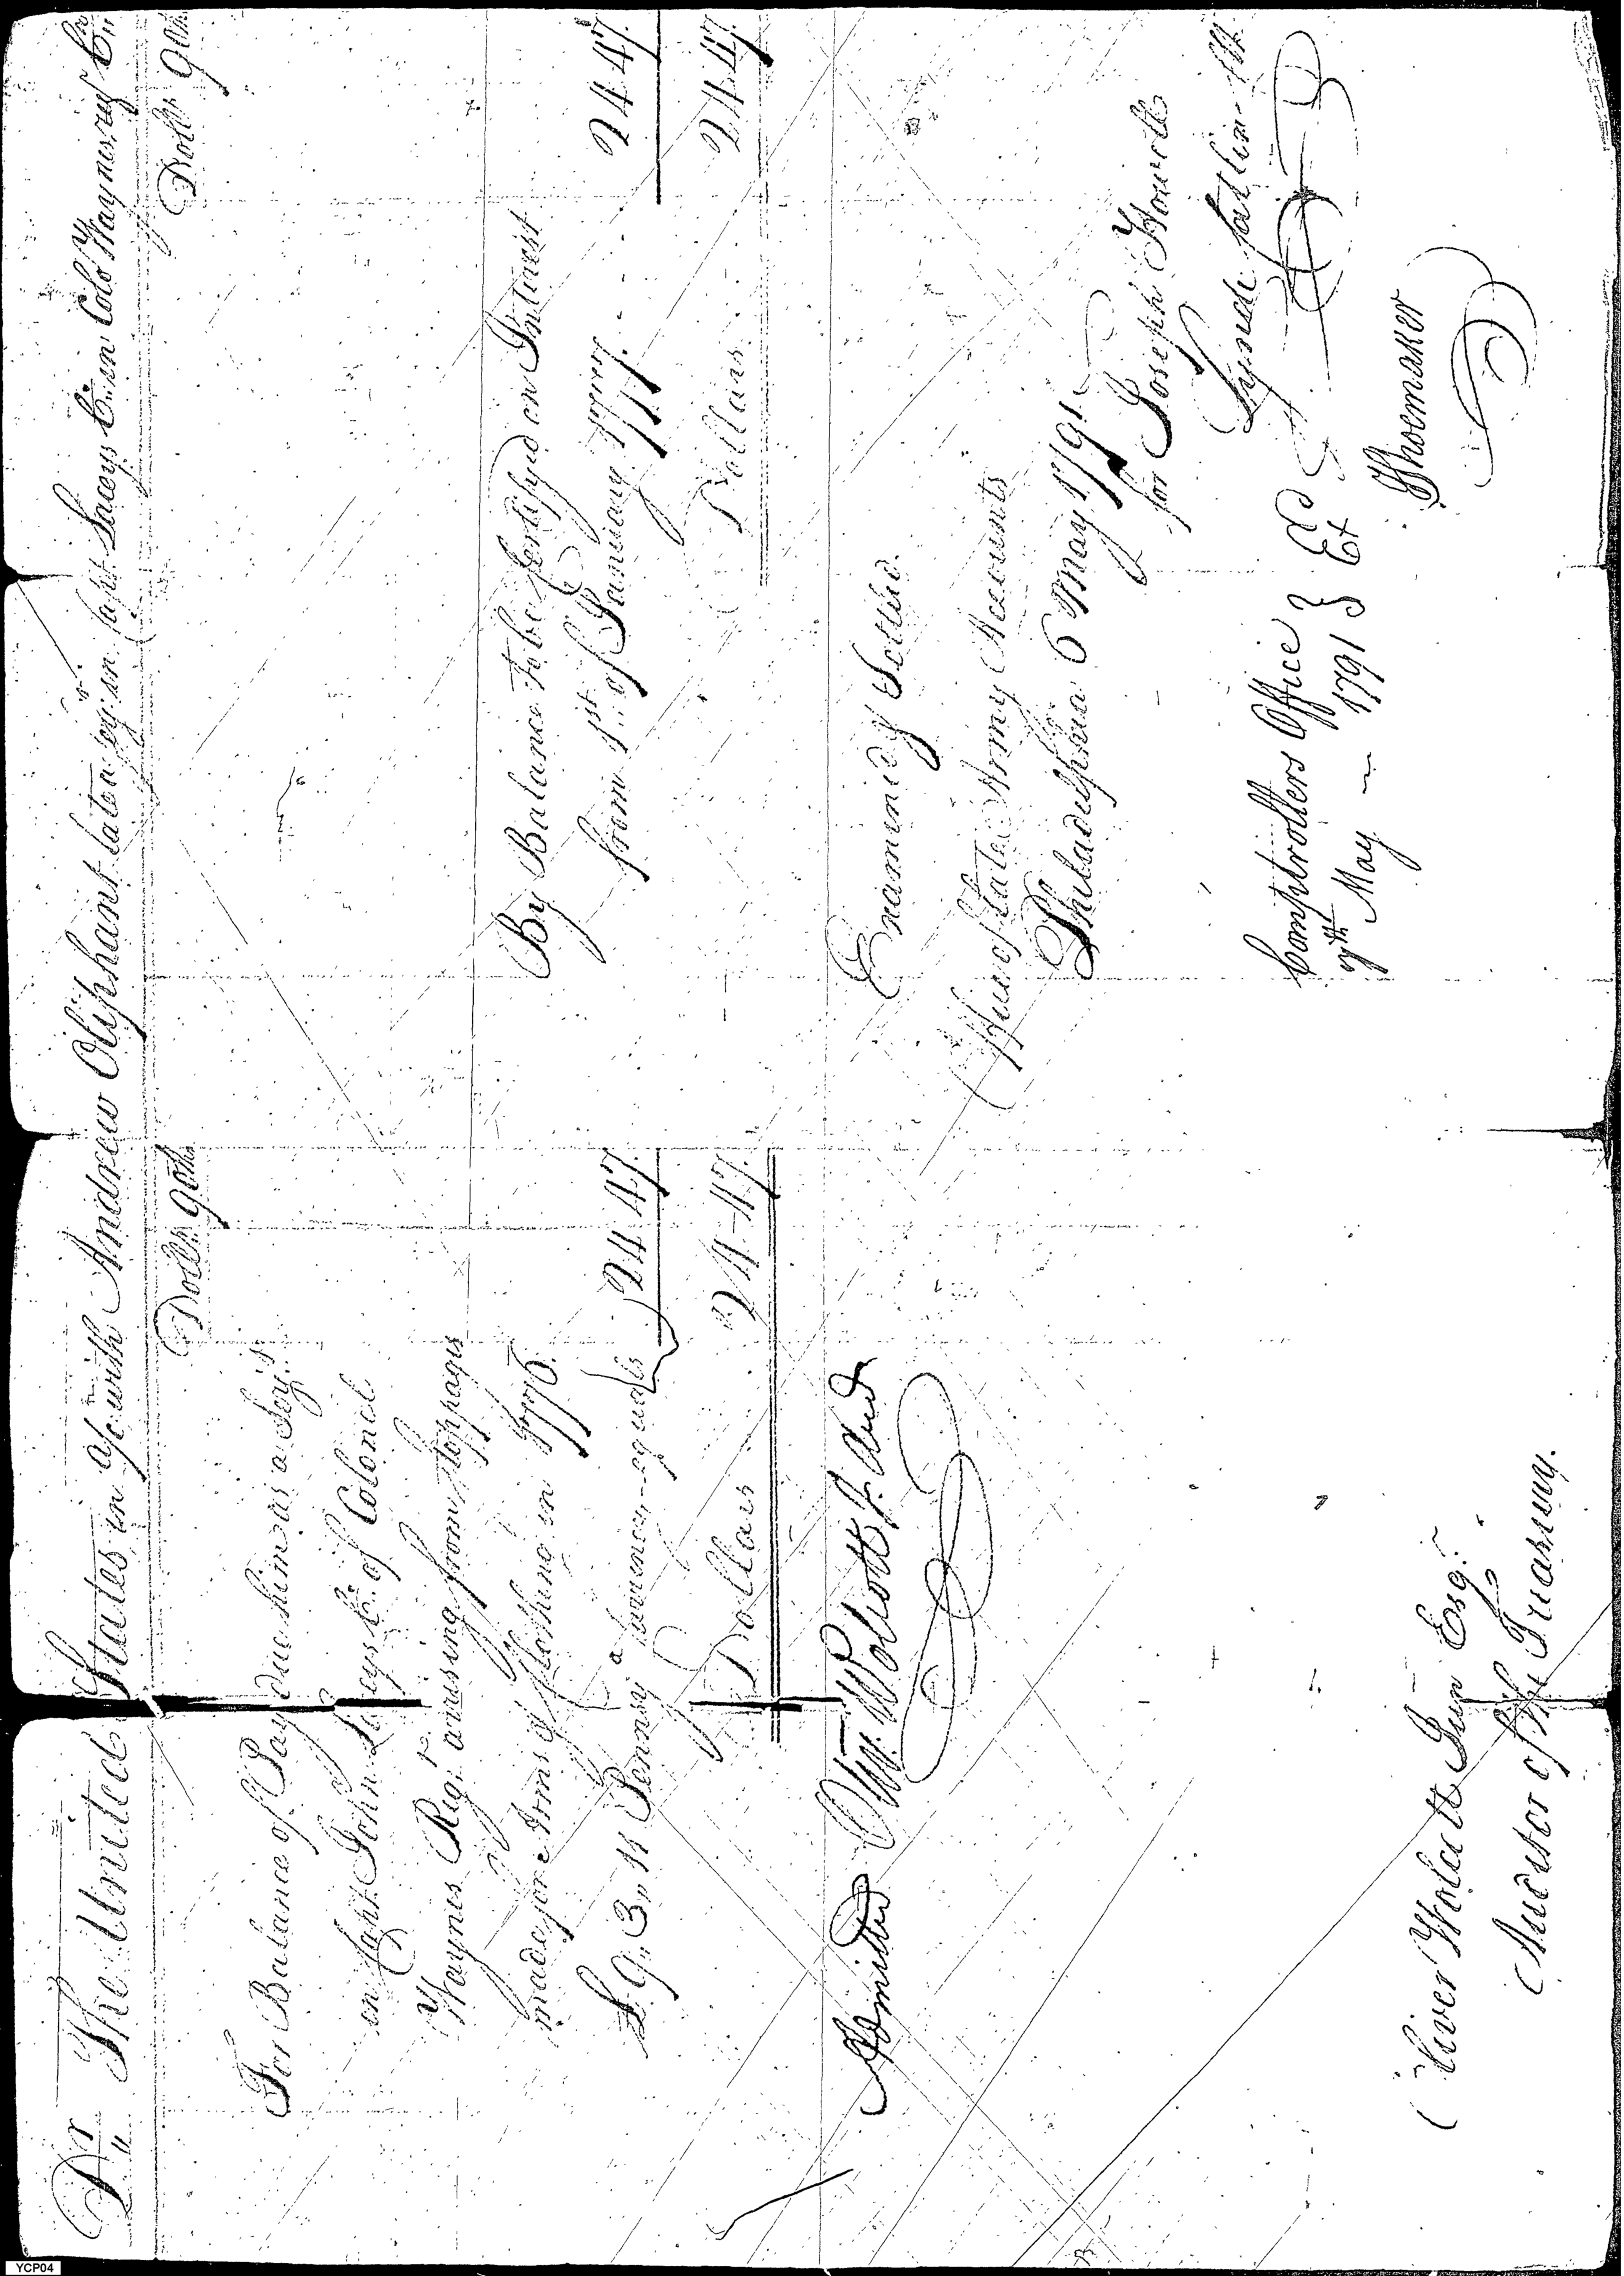 Dr The United States in a/c with Andrew Oliphant late a in Capt Laceys Co in Colo Waynes Reg Cr
Doll 90ths
For Balance of Pay due him as a Serjt
in Capt John Laceys Co of Colonel
Waynes Regt arising from stoppages
made for Arms & Clothing in 1776.
£9,, 3,, 11 Pennsya currency equals 24 47
Dollars 24 47
Admitted Olivr Wolcott Jr. Aud
Oliver Wolcott Jun Esqr
Auditor of the Treasury.
Doll 90ths
By Balance to be Certifyed on Interest
from 1st of January 1777. 24 47
Dollars 24 47
Examined & Settled.
Office of late Army Accounts
Philadelphia 6 May 1791
for Joseph Howell
Lynde Catlin
Comptrollers Office } Exd
7th May 1791 } Ex
Shoemaker
YCP04